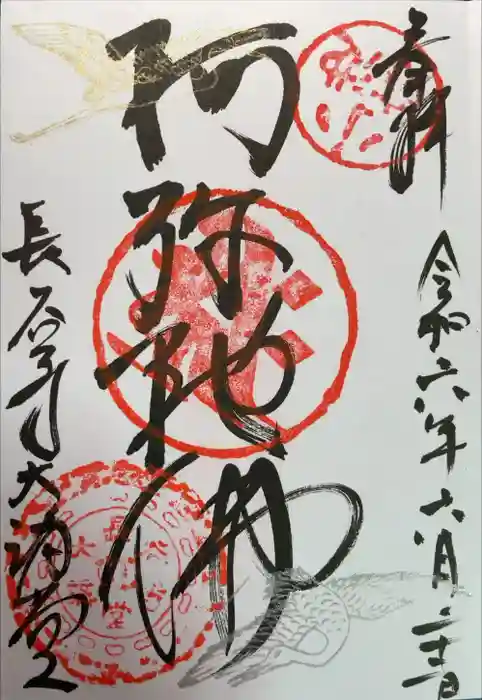 奉拝
令和六年六月二十
阿弥陀佛
長谷寺大講堂